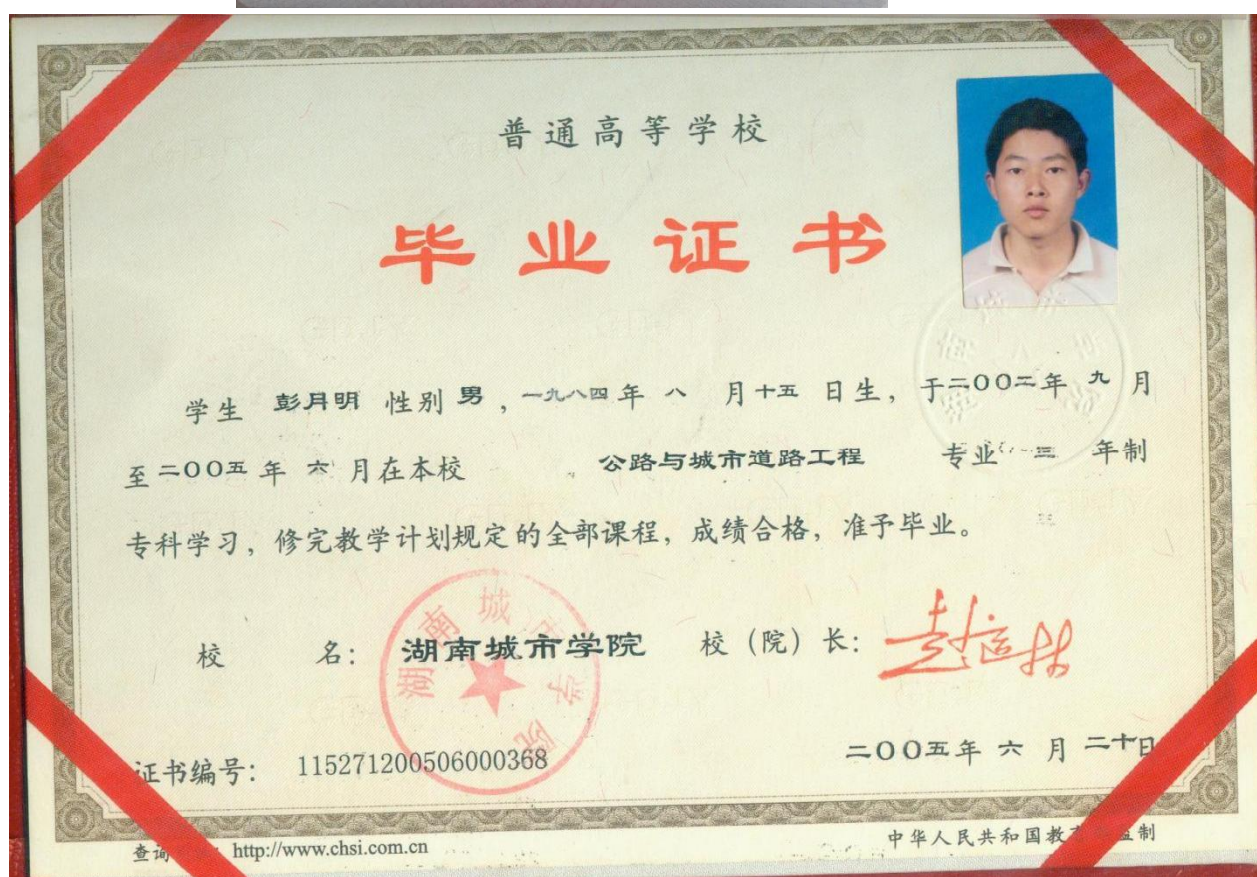 普通高等学校
毕业证书
学生 彭月明 性别 男 ，一九八四年 八 月十五 日生，于二00二年 九 月
至二00五年 六 月在本校 公路与城市道路工程 专业 三 年制
专科学习，修完教学计划规定的全部课程，成绩合格，准予毕业。
校 名： 湖南城市学院 校（院）长：
湖南城市学院
证书编号： 115271200506000368 二00五年 六 月 二十日
查询 http://www.chsi.com.cn 中华人民共和国教 监制